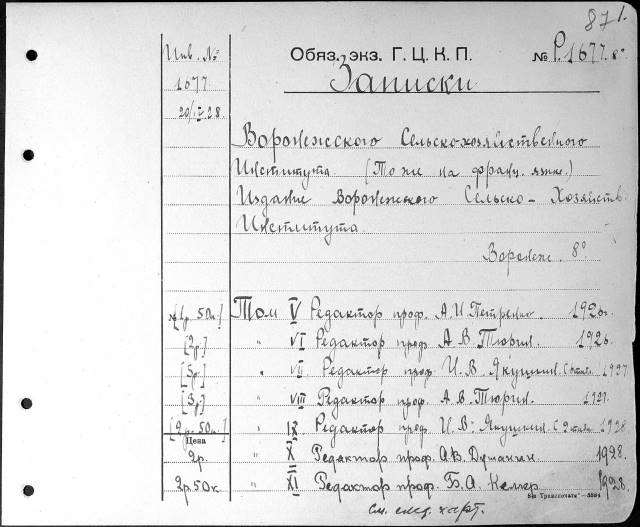 871.
Инв. №
1677
20/IV 28.
Обяз. экз. Г. Ц. К. П. № Р.1677. 8°
Записки
Воронежского Сельскохозяйственного
Института. (То же на франц. языке.)
Издание Воронежского Сельско-Хозяйств.
Института.
Воронеж. 8°
[1р. 50к.] Том V Редактор проф. А.И. Петренко. 1926г.
[2р.] " VI Редактор проф. А.В. Тюрин. 1926.
[3р.] " VII Редактор проф. И.В. Якушкин. 1927
[3р.] " VIII Редактор проф. А.В. Тюрин. 1927.
[2р. 50к.] " IX Редактор проф. И.В. Якушкин. 1928
Цена
2р. " X Редактор проф. А.В. Думанский. 1928.
2р. 50к. " XI Редактор проф. Б.А. Келлер 1928.
См. след. карт.
"Транспечать"—3594